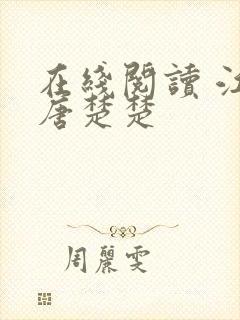 在綫閱讀 江
唐楚楚
周麗雯